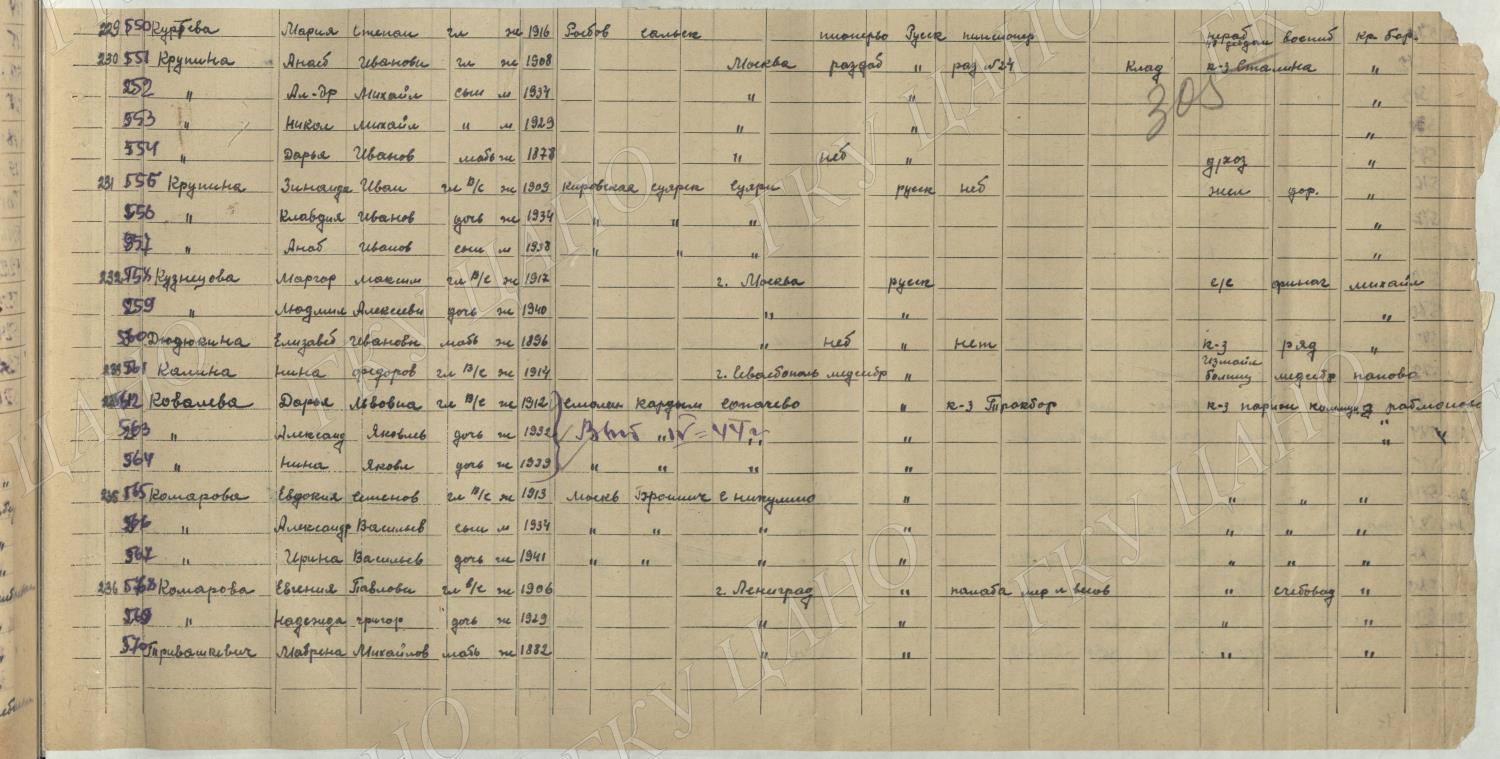 229 550 Мария Степан гл ж 1916 Сальск Русск воспит кр бор.
230 551 Крупина Анаст Иванови гл ж 1908 Москва раздаб " раз №24 Клад к-з Сталина "
552 " Ал-др Михайл сын м 1934 " " "
305
553 " Никол михайл " м 1929 " " "
554 " Дарья Иванов мать ж 1878 " нет " д/хоз "
231 555 Крупина Зинаида Иван гл в/с ж 1909 Кировская русск нет жел дор. "
556 " Клавдия Иванов дочь ж 1934 " " " "
557 " Анат Иванов сын м 1938 " " " "
232 558 Кузнецова Маргар максим гл в/с ж 1917 г. Москва русск с/с финаг михайл
559 " Людмил Алексеевн дочь ж 1940 " " "
560 Дюдюкина Елизавет Ивановн мать ж 1896 " нет " нет к-з ряд "
561 Калина нина федоров гл в/с ж 1914 г. Севастополь медсестр " Измайл больниц медсестр папова
562 Ковалева Дарья Львовна гл в/с ж 1912 Смолен Кардым " к-з к-з париж коммун д рабмоново
563 " Александ Яковлев дочь ж 1932 Выб IV-44г " " "
564 " Нина Яковл дочь ж 1939 " " " "
235 565 Комарова Евдокия Семенов гл в/с ж 1913 москв Бронниц с никулино " " " "
566 " Александр Васильев сын м 1934 " " " " " " "
567 " Ирина Васильев дочь ж 1941 " " " " " " "
236 568 Комарова Евгения Павловн гл в/с ж 1906 г. Ленинград " палата мер и весов " счетовод "
569 " Надежда григор дочь ж 1929 " " " " "
570 Тривашкевич Матрена Михайлов мать ж 1882 " " " "
ГКУ ЦАНО